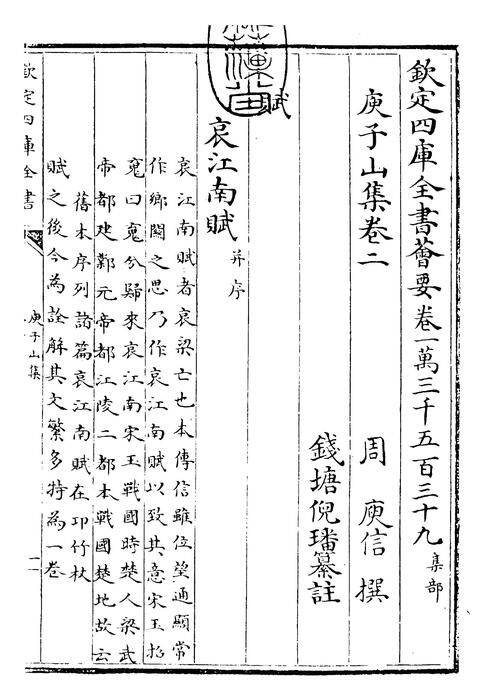 欽定四庫全書薈要卷一萬三千五百三十九 集部
庾子山集卷二
周 庾信 撰
錢塘倪璠纂註
賦
哀江南賦 并序
哀江南賦者哀梁亡也本傳信雖位望通顯常
作鄉關之思乃作哀江南賦以致其意宋玉招
䰟曰䰟兮歸來哀江南宋玉戰國時楚人梁武
帝都建鄴元帝都江陵二都本戰國楚地故云
舊本序列諸篇哀江南賦在邛竹杖
賦之後今為詮解其文繁多特為一巻
欽定四庫全書
庾子山集
一